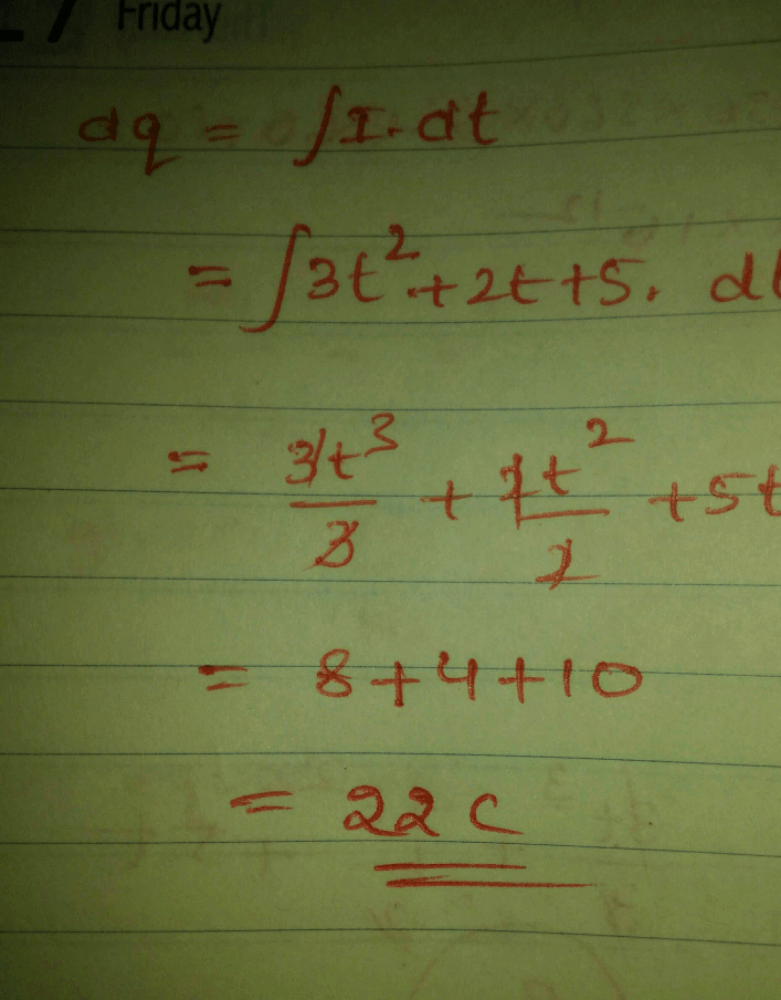 17 Friday
dq = ∫I. dt
= ∫3t²+2t+5. dt
= 3t³/3 + 2t²/2 +5t
= 8+4+10
= 22 C